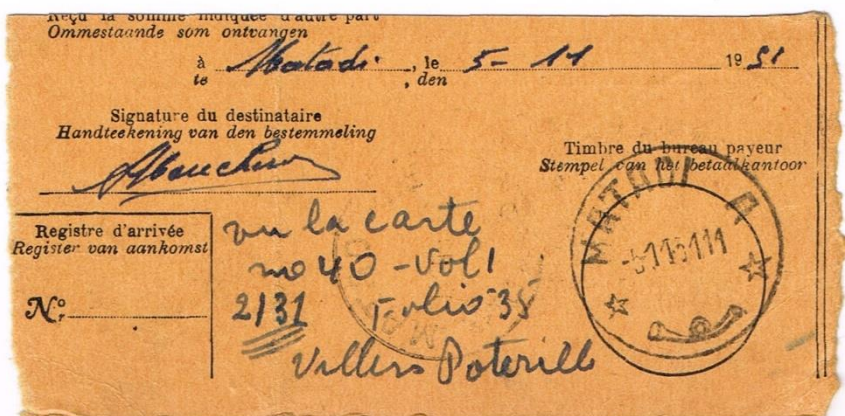 Reçu la somme indiquée d'autre part
Ommestaande som ontvangen
à Matadi, le 5-11 1951
te , den
Signature du destinataire
Handteekening van den bestemmeling
Timbre du bureau payeur
Stempel van het betaalkantoor
MATADI A
-5 11 51 11
Registre d'arrivée
Register van aankomst
N°
vu la carte
no 40 - Vol 1
2131 Folio 35
Villers Poterill